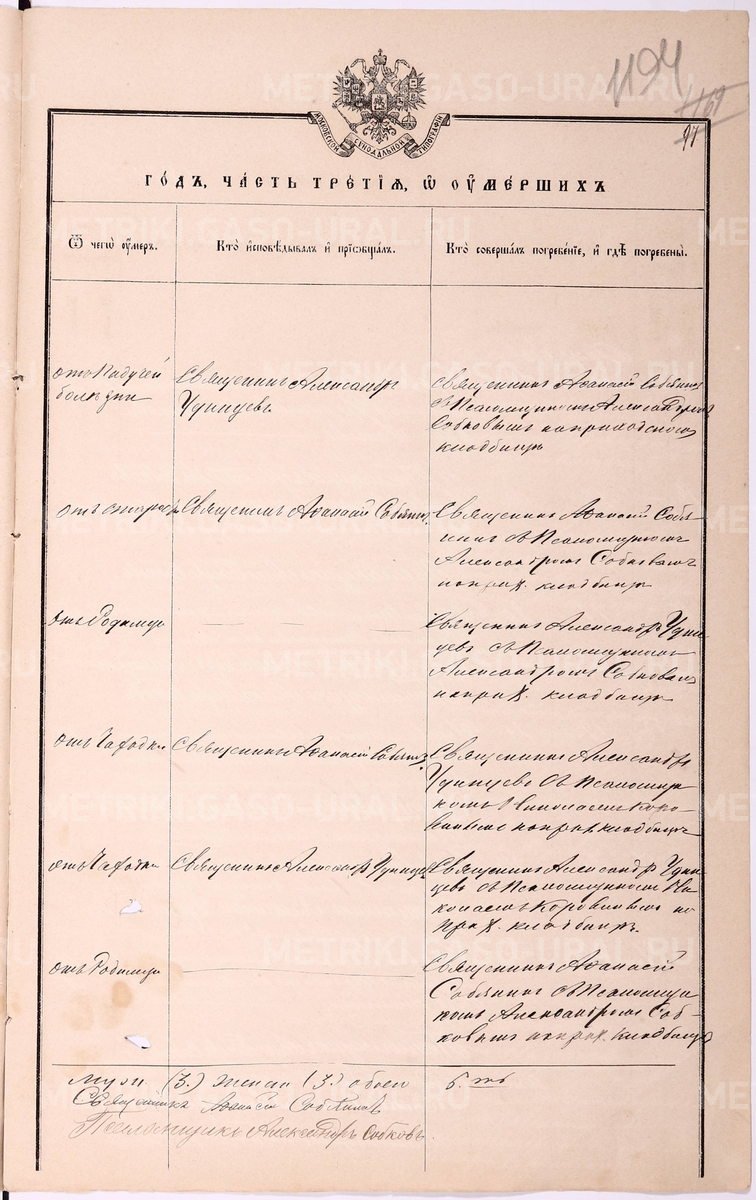 1194
169
97
МОСКОВСКОЙ СѴНОДАЛЬНОЙ ТИПОГРАФІИ
ГОДЪ, ЧАСТЬ ТРЕТІЯ, Ѡ ОУМЕРШИХЪ
Ѿ чегѡ оумеръ.
Кто исповѣдывалъ и пріѡбщалъ.
Кто совершалъ погребеніе, и гдѣ погребены.
отъ Падучей
болѣзни
Священникъ Александръ
Удинцевъ
Священникъ Аѳанасій Собянинъ
съ Псаломщикомъ Александромъ
Собковымъ на приходскомъ
кладбищѣ
отъ старости
Священникъ Аѳанасій Собянинъ
Священникъ Аѳанасій Собя-
нинъ съ Псаломщикомъ
Александромъ Собковымъ
на прих. кладбищѣ
отъ Родимца
Священникъ Александръ Удин-
цевъ съ Псаломщикомъ
Александромъ Собковымъ
на прих. кладбищѣ
отъ Чахотки
Священникъ Аѳанасій Собянинъ
Священникъ Александръ
Удинцевъ съ Псаломщи-
комъ Николаемъ Коро-
виным на прих. кладбищѣ
отъ Чахотки
Священникъ Александръ Удинцевъ
Священникъ Александръ Удин-
цевъ съ Псаломщикомъ Ни-
колаемъ Коровинымъ на
прих. кладбищѣ
отъ Родимца
Священникъ Аѳанасій
Собянинъ съ Псаломщи-
комъ Александромъ Соб-
ковымъ на прих. кладбищѣ
муж. (3.) женск (3.) обоего 6. ть
Священникъ Аѳанасій Собянинъ
Псаломщикъ Александръ Собковъ
METRIKI.GASO-URAL.RU